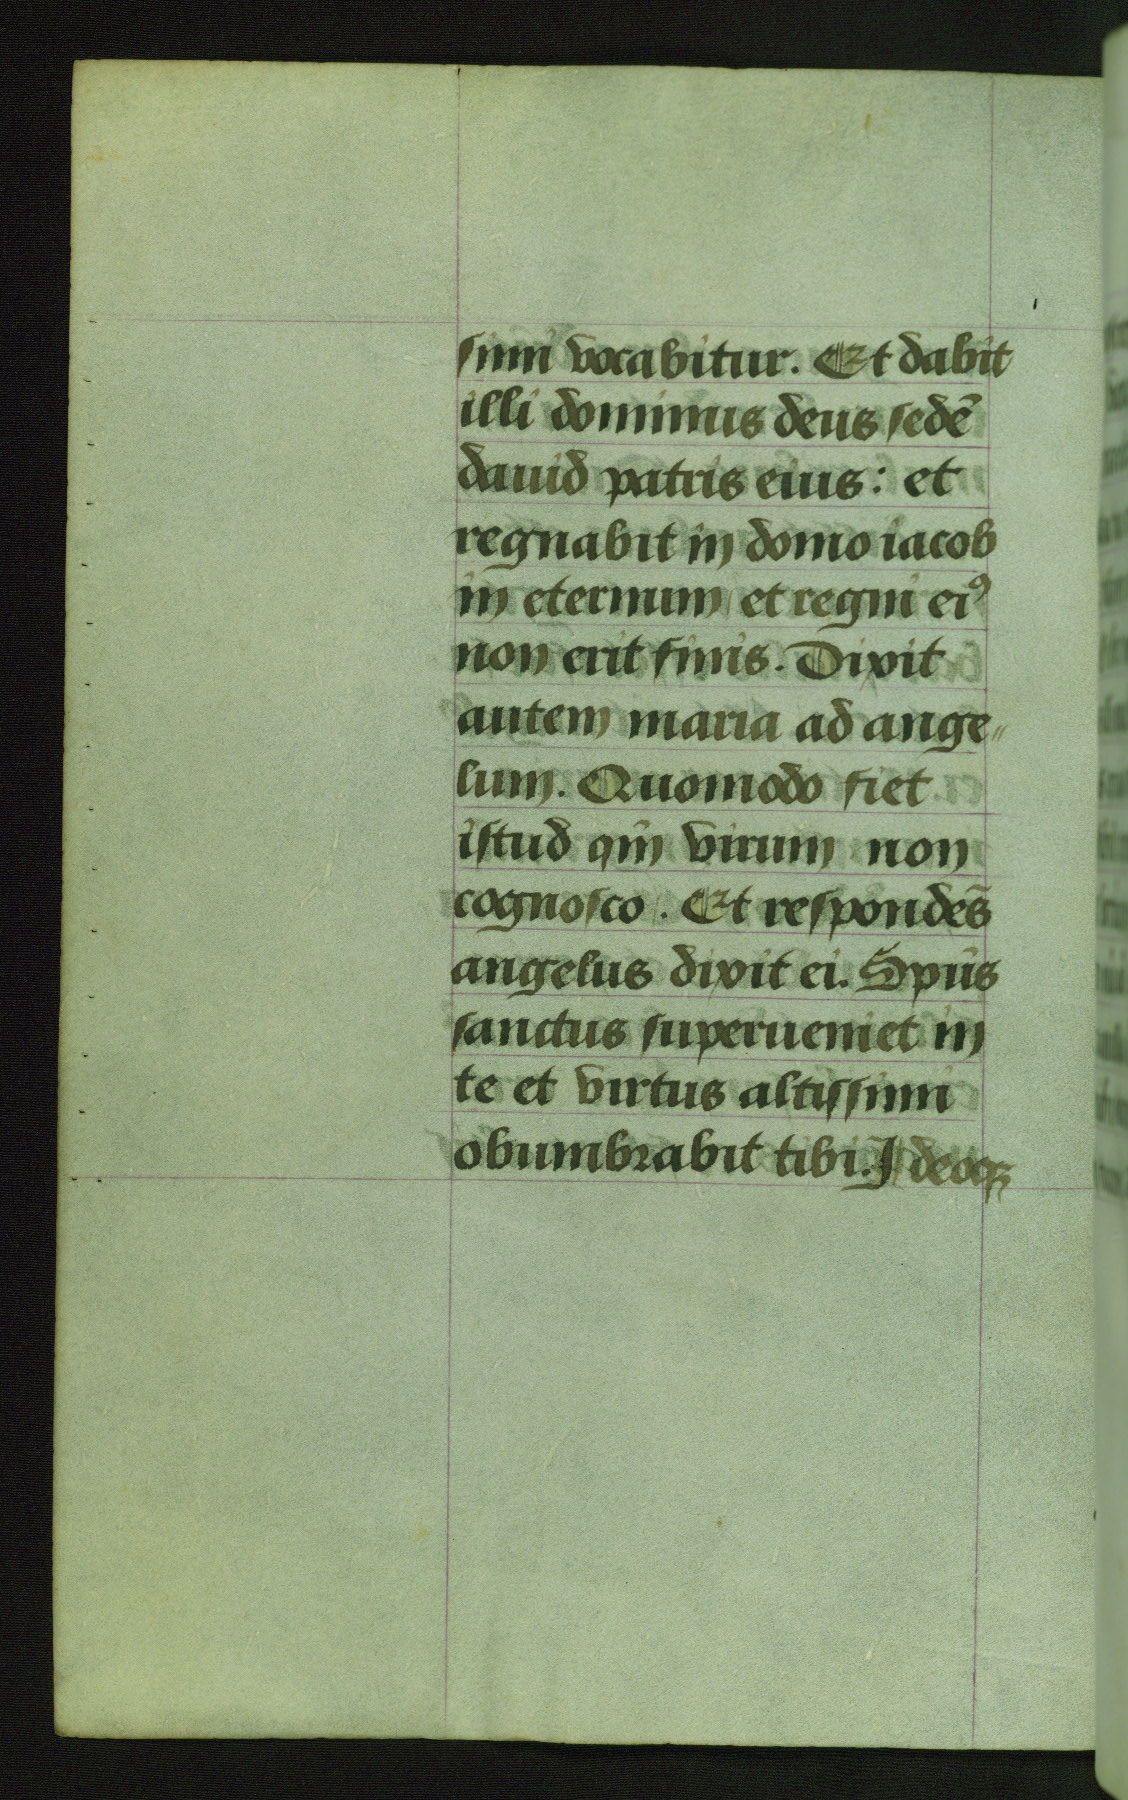 simi vocabitur. Et dabit
illi dominus deus sedē
dauid patris eius: et
regnabit in domo iacob
in eternum et regni eiꝰ
non erit finis. Dixit
autem maria ad ange„
lum. Quomodo fiet
istud qm̄ virum non
cognosco. Et respondēs
angelus dixit ei. Spūs
sanctus superueniet in
te et virtus altissimi
obumbrabit tibi. Ideoqꝫ